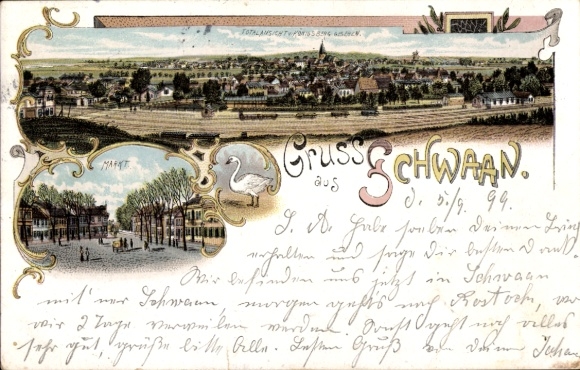 TOTALANSICHT v. KÖNIGSBERG GESEHEN.
MARKT.
Gruss aus Schwaan.
d. 5./9. 99.
L. A. Habe soeben deinen Brief
erhalten und sage dir besten Dank.
Wir befinden uns jetzt in Schwaan
mit'ner Schwaan morgen gehts nach Rostock, wo
wir 2 Tage verweilen werden. Sonst geht noch alles
sehr gut, grüße bitte Alle. Besten Gruß von deinem